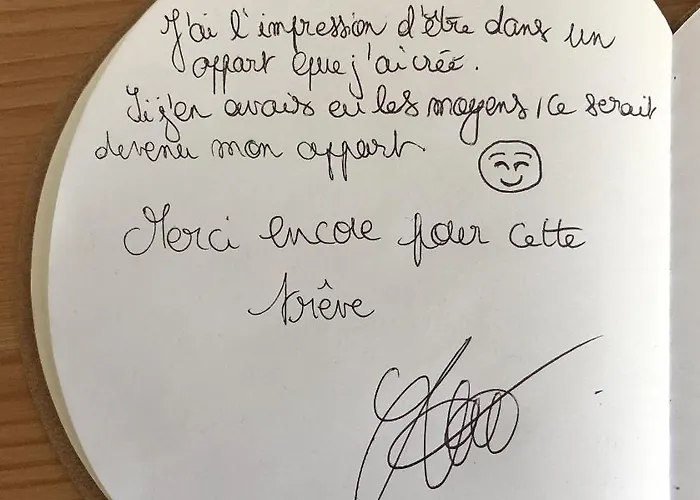 J'ai l'impression d'être dans un
appart que j'ai créé.
Si j'en avais eu les moyens, ce serait
devenu mon appart
Merci encore pour cette
trêve